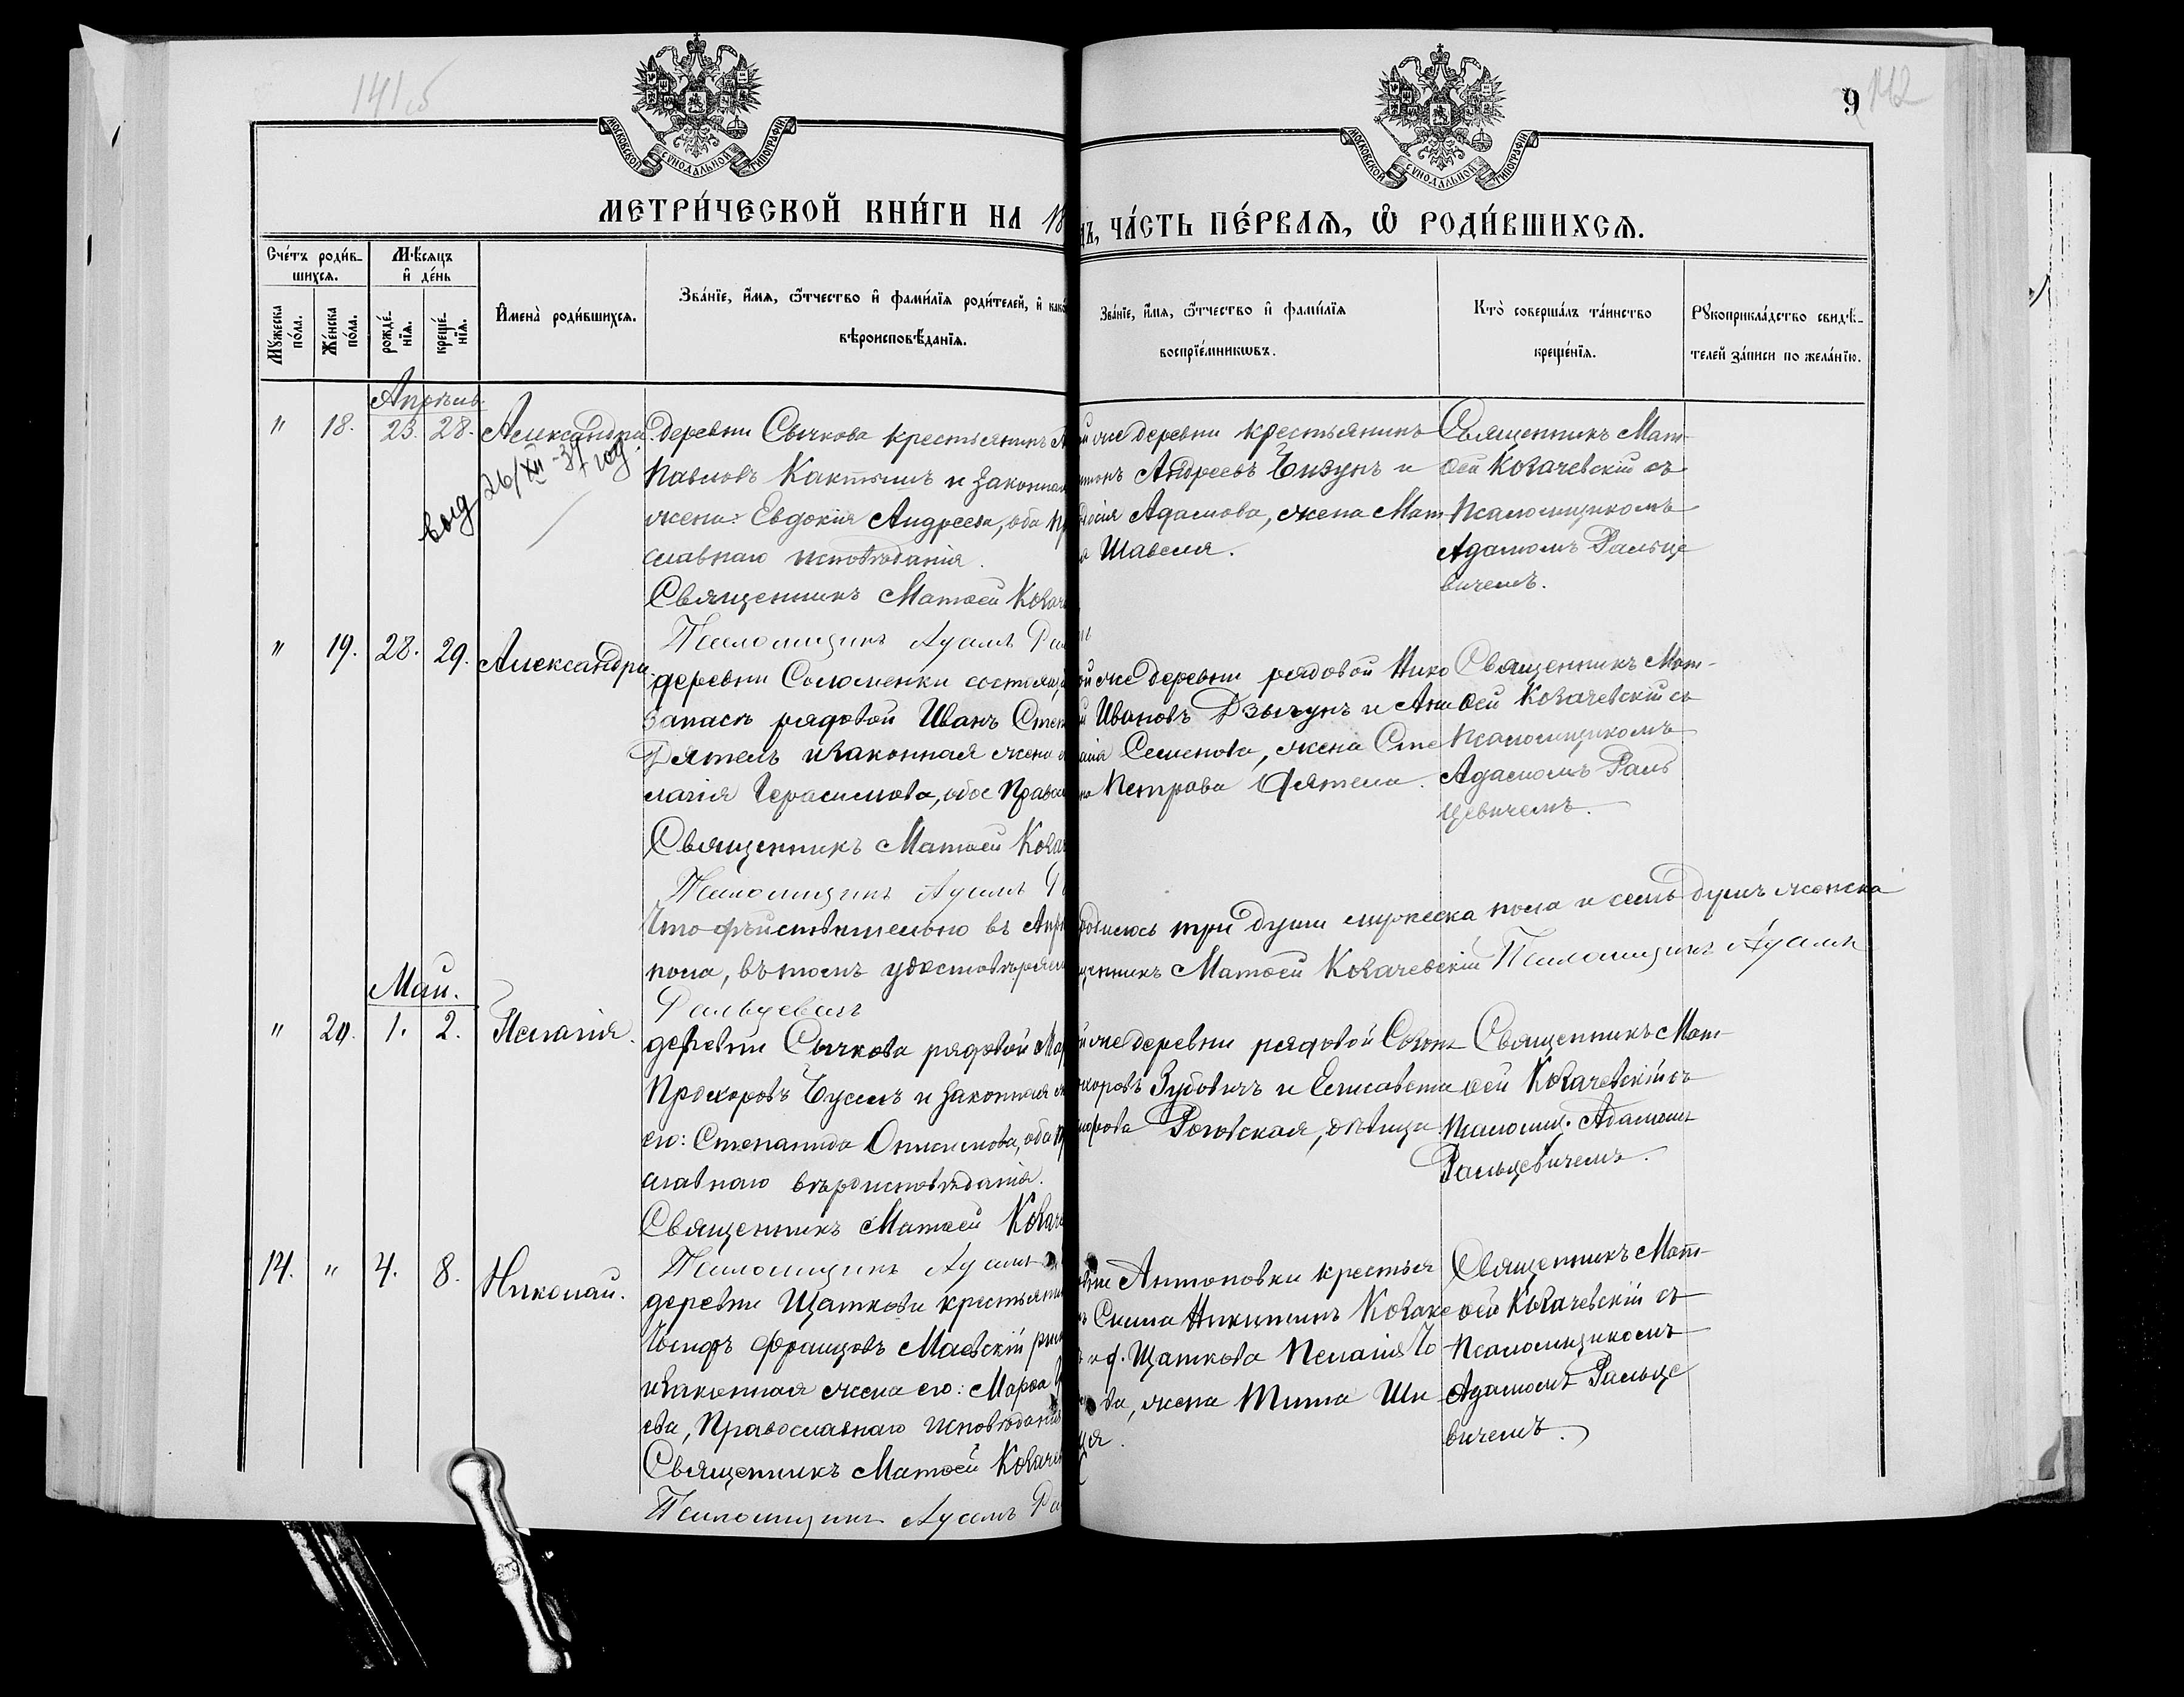 141об
9
142
МОСКОВСКОЙ СУНОДАЛЬНОЙ ТИПОГРАФІИ
МОСКОВСКОЙ СУНОДАЛЬНОЙ ТИПОГРАФІИ
МЕТРИ́ЧЕСКОЙ КНИ́ГИ НА 18
ЧА́СТЬ ПЕ́РВАЯ, Ѽ РОДИ́ВШИХСЯ.
Сче́тъ роди́в-
шихся.
Мѣ́сяцъ
и де́нь
Мꙋ́жеска
по́ла.
Же́нска
по́ла.
рожде́-
нїя.
креще́-
нїя.
И҆мена̀ роди́вшихся.
Зва́нїе, и҆́мя, ѻ҆́тчество и҆ фами́лїя роди́телей, и҆ како
вѣроисповѣ́данїя.
Зва́нїе, и҆́мя, ѻ҆́тчество и҆ фами́лїя
воспрїе́мникѡвъ.
Кто̀ соверша́лъ та́инство
креще́нїя.
Рꙋкоприкла́дство свидѣ́-
телей за́писи по жела́нїю.
Апрѣль
" 18. 23. 28. Александра.
выд 26/XII-37 год.
деревни Сычкова крестьянинъ
Павловъ Кактышъ и законная
жена: Евдокія Андреева, оба пр
славнаго исповѣданія.
Священникъ Матѳей Козаче
Псаломщикъ Адамъ Ра
же деревни крестьянинъ
Андреевъ Чизунъ и
Адамова, жена Мат
Шавеля.
Священникъ Мат-
ѳей Козачевскій съ
Псаломщикомъ
Адамомъ Ральце
вичемъ.
" 19. 28. 29. Александра.
деревни Соломенки состоящ
запасѣ рядовой Иванъ Степ
Дятелъ и законная жена е
лагія Герасимова, обое Правос
Священникъ Матѳей Козач
Псаломщикъ Адамъ Ра
же деревни рядовой Нико
Ивановъ Дзычунъ и Ан
Семенова, жена Сте
Петрова Дятела.
Священникъ Мат-
ѳей Козачевскій съ
Псаломщикомъ
Адамомъ Раль
цевичемъ.
Что дѣйствительно въ Апр
родилось три души мужеска пола и семь душъ женска
пола, въ томъ удостовѣряем
щенникъ Матѳей Козачевскій Псаломщикъ Адамъ
Ральцевичъ
Май.
" 20. 1. 2. Пелагія.
деревни Сычкова рядовой Мар
Прохоровъ Буселъ и законная ж
его: Степанида Онисимова, оба пр
славнаго вѣроисповѣданія.
Священникъ Матѳей Козаче
Псаломщикъ Адамъ
же деревни рядовой Созонъ
хоровъ Зубовичъ и Елисавета
Роговская, дѣвица.
Священникъ Мат-
ѳей Козачевскій съ
псаломщ. Адамомъ
Ральцевичемъ.
14. " 4. 8. Николай.
деревни Щаткова крестьянин
Іосифъ Францовъ Маевскій рим
и законная жена его: Марѳа
ева, Православнаго исповѣданія
Священникъ Матѳей Козачев
Псаломщикъ Адамъ Ра
Антоновки крестья
Никитинъ Козаке
и д. Щаткова Пелагія Іо
ва, жена Тита Ши
ця.
Священникъ Мат-
ѳей Козачевскій съ
Псаломщикомъ
Адамомъ Ральце
вичемъ.